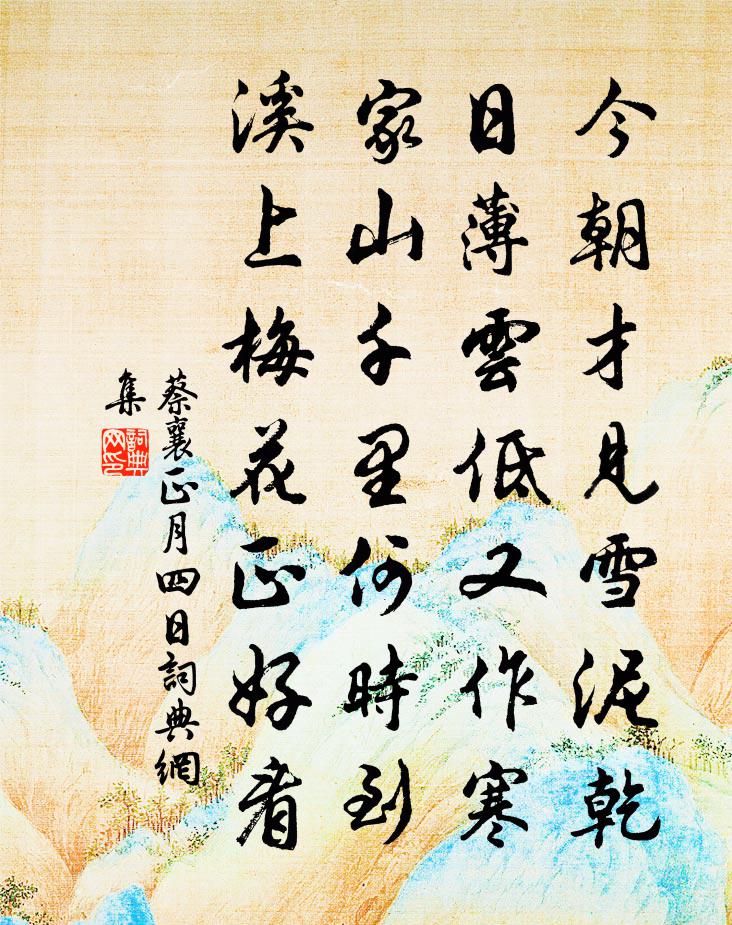 今朝才見雪泥乾
日薄雲低又作寒
家山千里何時到
溪上梅花正好看
蔡襄正月四日詞典網
集
詞典
网印